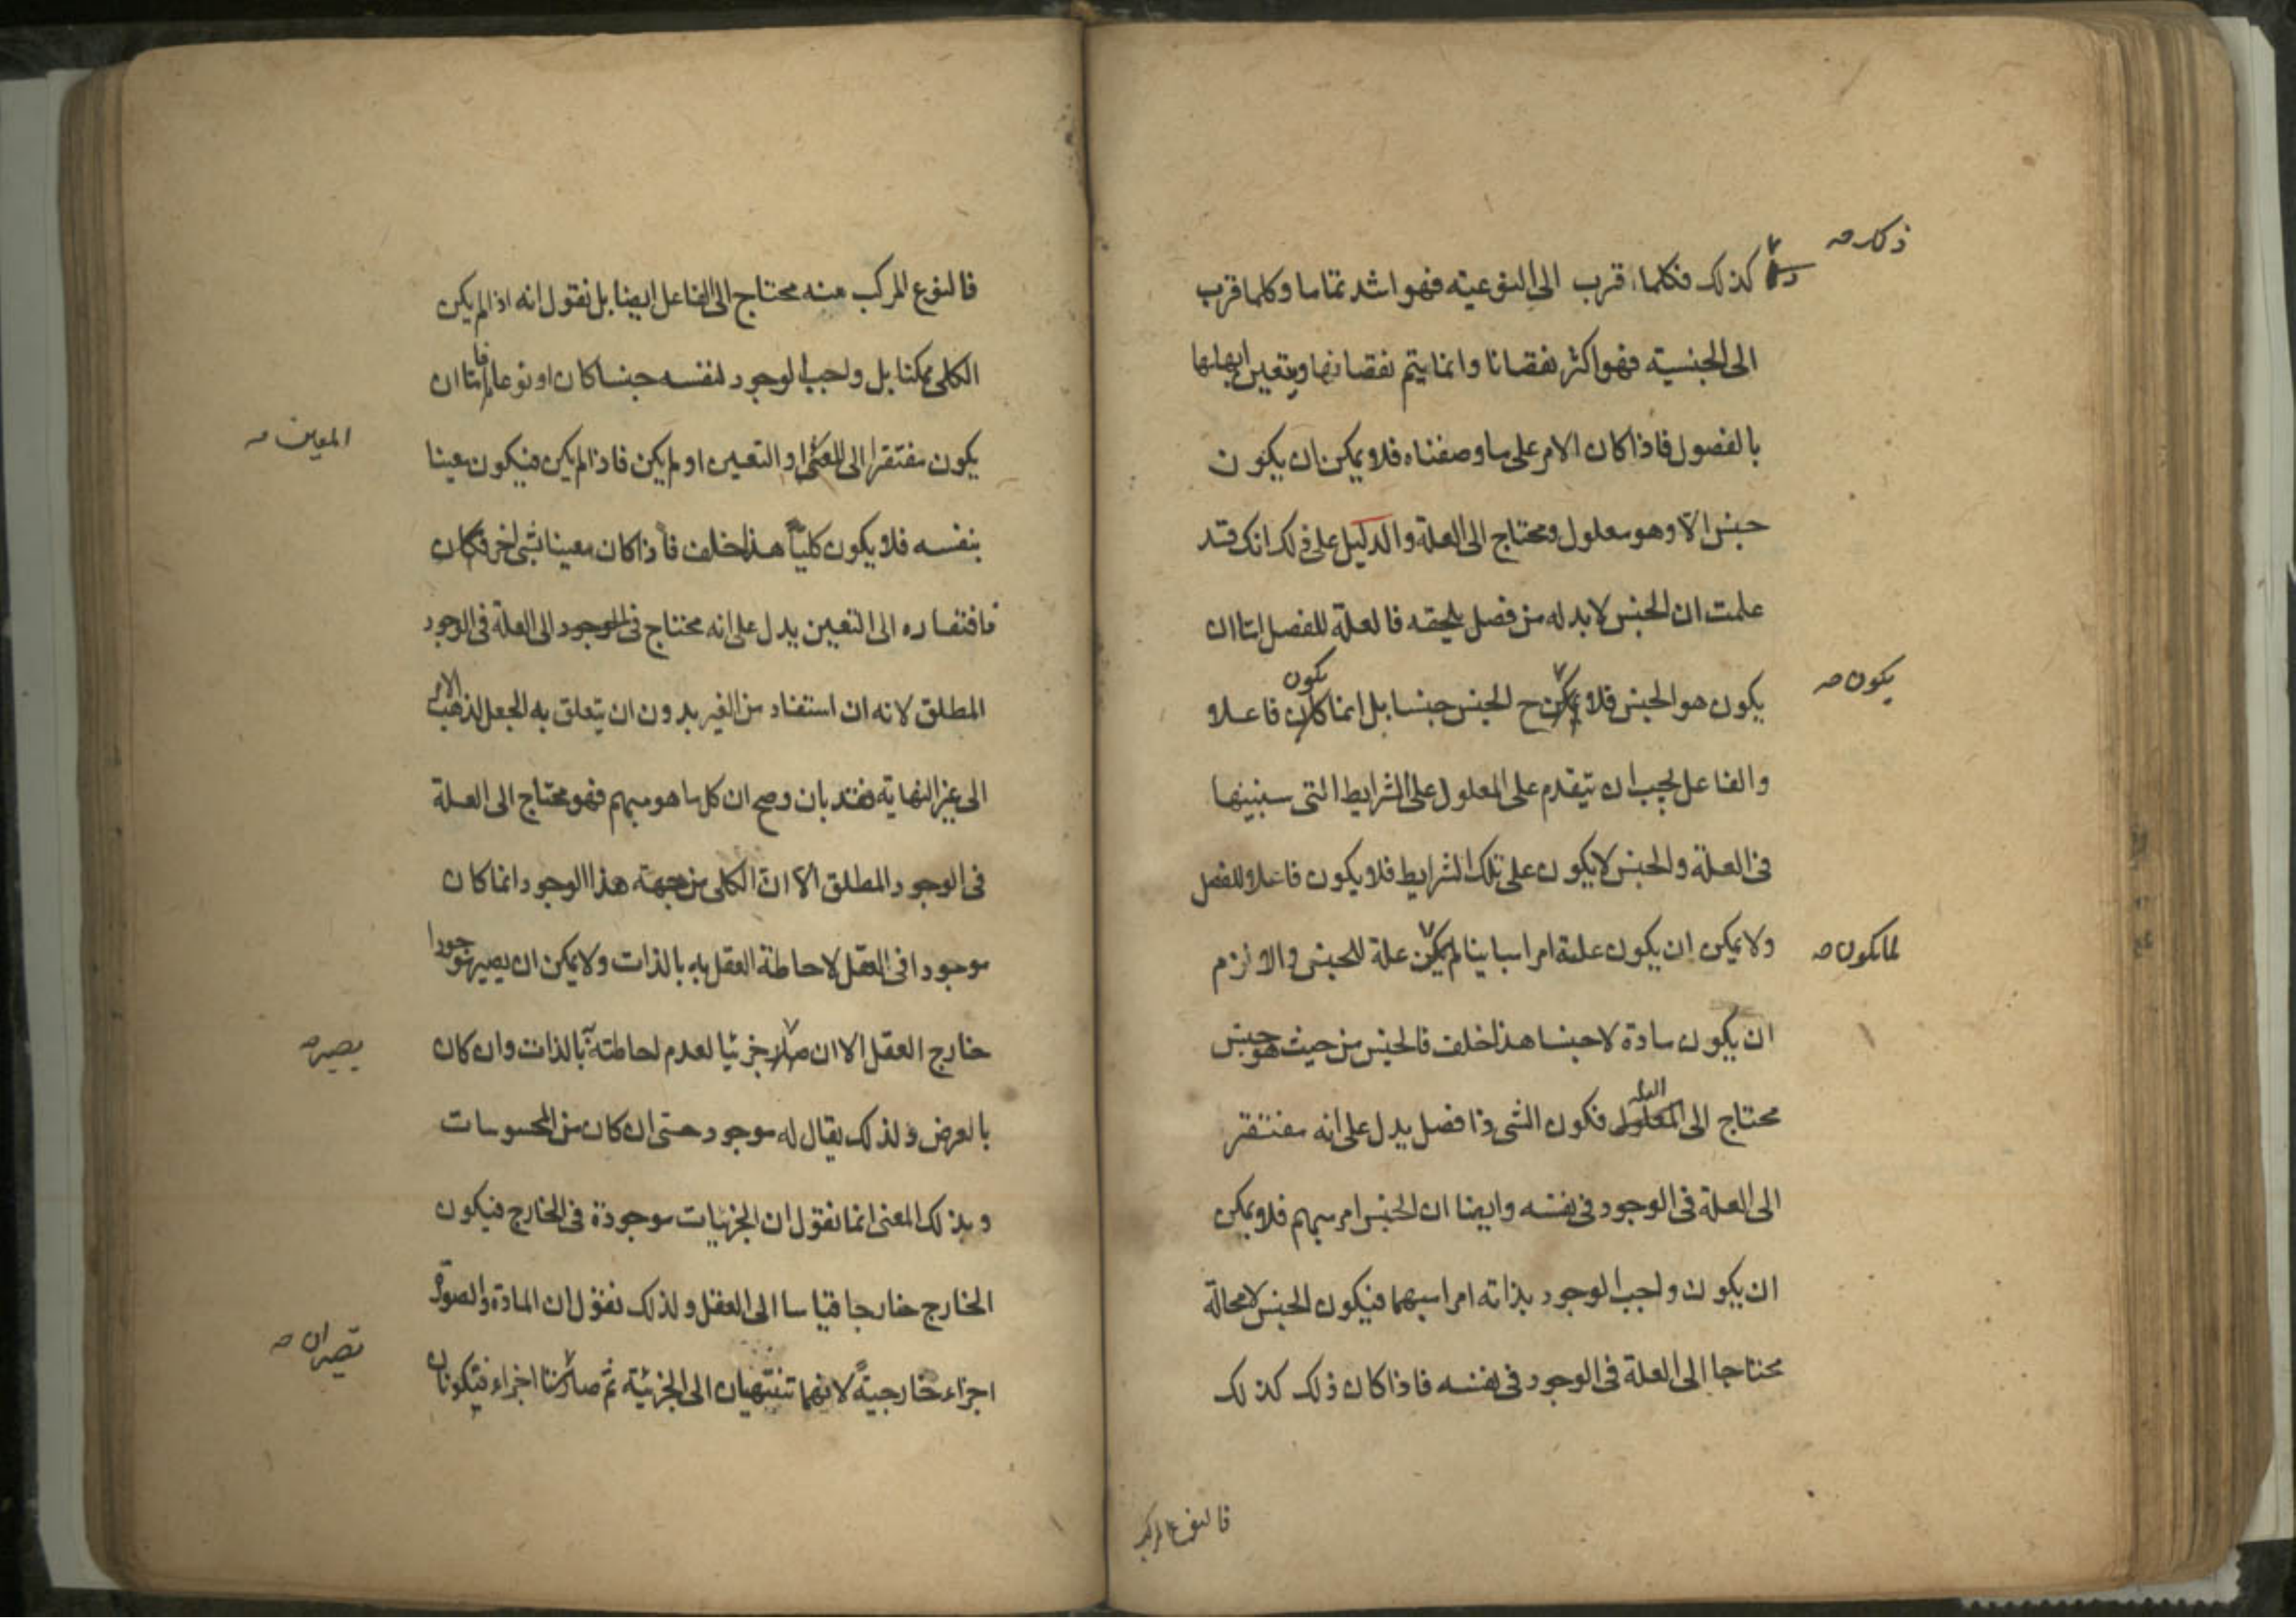 ذكر صه
كذلك فكلما قرب الى النوعيته فهو اشد تماما وكلما قرب
الى الجنسيته فهو اكثر نقصانا وانما يتم نقصانها ويتعين ابهامها
بالفصول فاذا كان الامر على ما وصفناه فلا يمكن ان يكون
جنس الا وهو معلول ومحتاج الى العلة والدليل على ذلك انك قد
علمت ان الجنس لا بد له من فصل يلحقه فالعلة للفصل اما ان
يكون هو الجنس فلا يكن ح الجنس جنسا بل انما كان يكون فاعلا
يكون صه
والفاعل يجب ان يتقدم على المعلول على الشرايط التى سنبينها
فى العلة والجنس لا يكون على تلك الشرايط فلا يكون فاعلا للفصل
ولا يمكن ان يكون علمة امرا مباينا لم يكن علة للجنس والا لزم
لما يكون صه
ان يكون مادة لا جنسا هذا خلف فالجنس من حيث هو جنس
محتاج الى المعلول العلة فكون الشى ذا فصل يدل على انه مفتقر
الى العلة فى الوجود فى نفسه وايضا ان الجنس امر مبهم فلا يمكن
ان يكون واجب الوجود بذاته امرا مبهما فيكون الجنس لا محالة
محتاجا الى العلة فى الوجود فى نفسه فاذا كان ذلك كذلك
فالنوع المركب
فالنوع المركب منه محتاج الى الفاعل ايضا بل نقول انه اذا لم يكن
الكلى ممكنا بل واجب الوجود لنفسه جنسا كان او نوعا فاما ان
يكون مفتقرا الى المعين او التعين او لم يكن فاذا لم يكن فيكون معينا
المعين صه
بنفسه فلا يكون كليا هذا خلف فاذا كان معينا بشى اخر فكان
فافتقاره الى التعين يدل على انه محتاج فى الوجود الى العلة فى الوجود
المطلق لانه ان استفاد من الغير بدون ان يتعلق به الجعل لذهب الامر
الى غير النهاية فقد بان وصح ان كل ما هو مبهم فهو محتاج الى العلة
فى الوجود المطلق الا ان الكلى من جهة هذا الوجود انما كان
موجودا فى العقل لاحاطة العقل به بالذات ولا يمكن ان يصير موجودا
خارج العقل الا ان صار جزئيا لعدم احاطته بالذات وان كان
يصير صه
بالعرض ولذلك يقال له موجود حسى ان كان من المحسوسات
وبذلك المعنى انما نقول ان الجزئيات موجودة فى الخارج فيكون
الخارج خارجا قياسا الى العقل ولذلك نقول ان المادة والصورة
اجزاء خارجية لانهما تنتهيان الى الجزئية ثم صارتا اجزاء فتكونان
تصيران صه